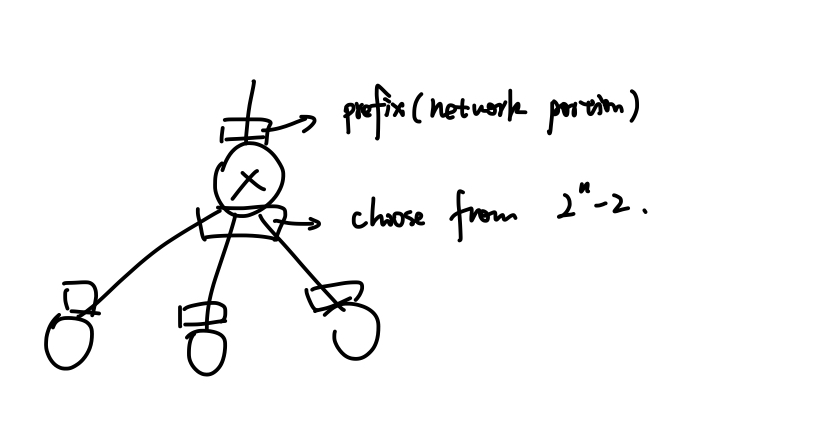 prefix (network portion)
X
choose from 2^n-2.